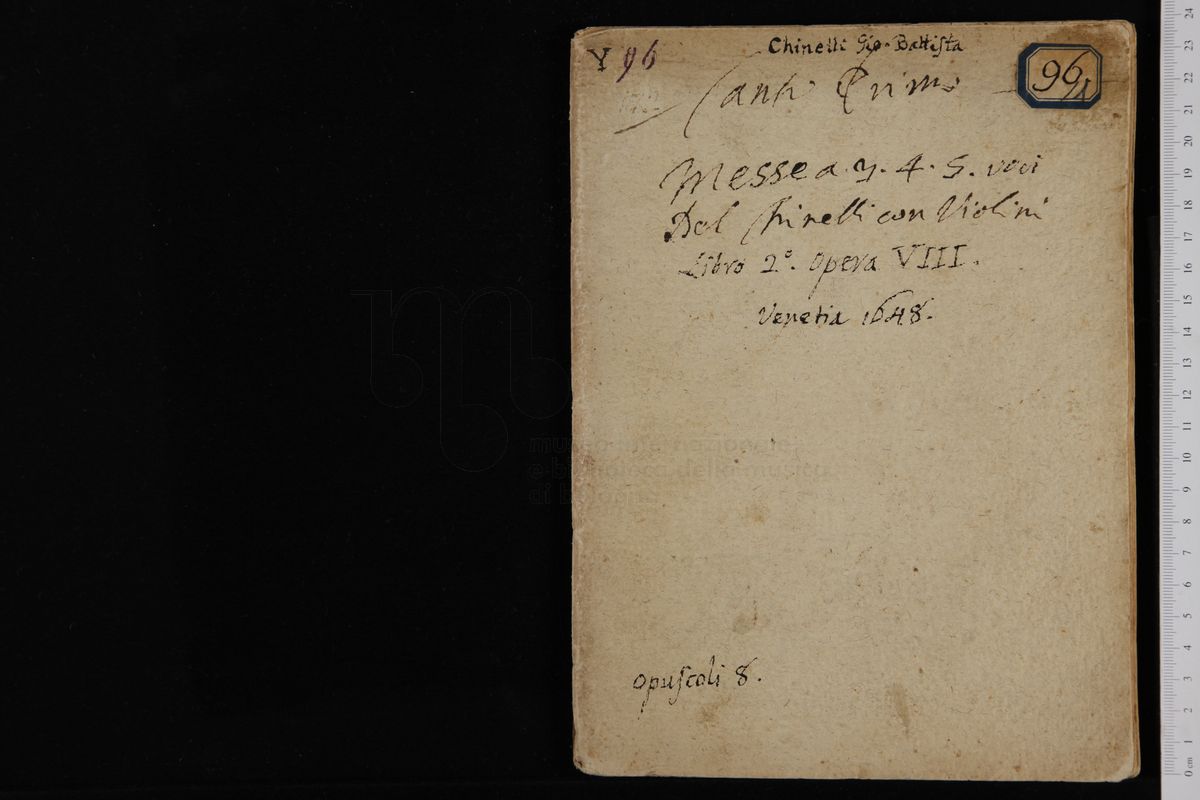 Y 96
Chinelli Gio. Battista
96/1
Canto Primo
Messe a. 3. 4. 5. voci
Del Chinelli con Violini
Libro 2º. Opera VIII.
Venetia 1648.
opuscoli 8.
museo internazionale
e biblioteca della musica
di bologna
0 cm 1 2 3 4 5 6 7 8 9 10 11 12 13 14 15 16 17 18 19 20 21 22 23 24